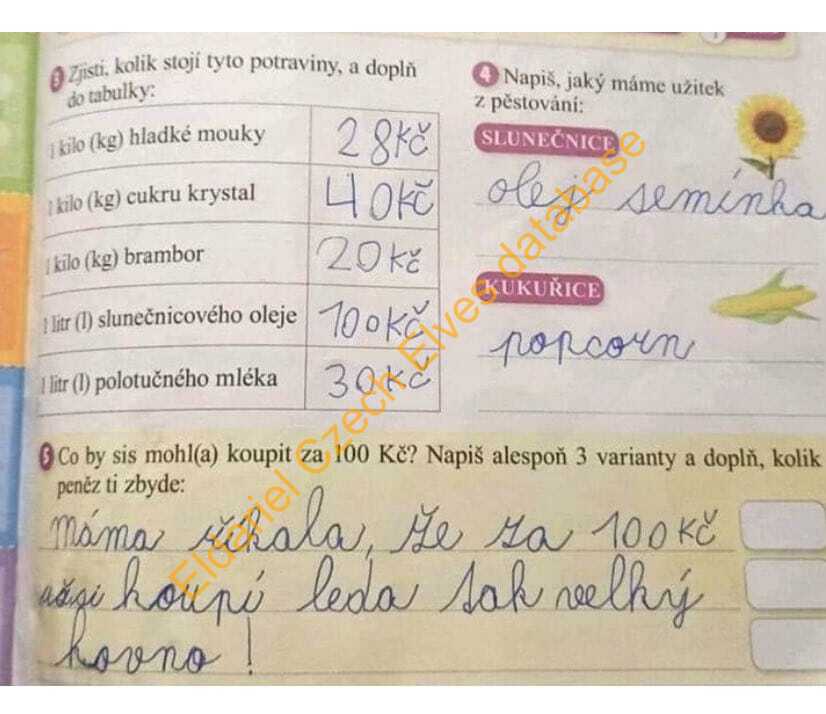 3 Zjisti, kolik stojí tyto potraviny, a doplň
do tabulky:
1 kilo (kg) hladké mouky 28 Kč
1 kilo (kg) cukru krystal 40 Kč
1 kilo (kg) brambor 20 Kč
1 litr (l) slunečnicového oleje 100 Kč
1 litr (l) polotučného mléka 30 Kč
4 Napiš, jaký máme užitek
z pěstování:
SLUNEČNICE
olej semínka
KUKUŘICE
popcorn
5 Co by sis mohl(a) koupit za 100 Kč? Napiš alespoň 3 varianty a doplň, kolik
peněz ti zbyde:
máma říkala, že za 100 Kč
koupí leda tak velký
hovno!
Eldariel Czech Elves database